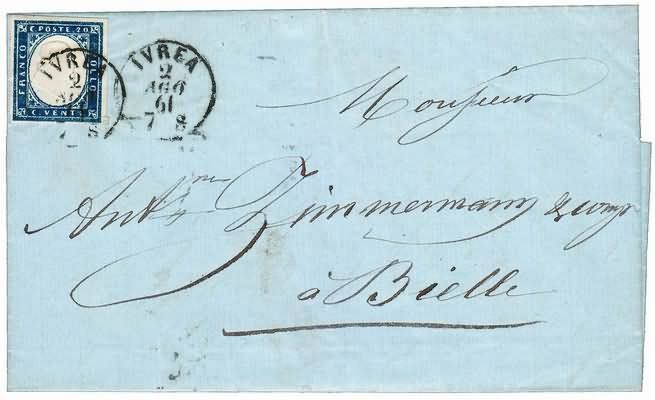 C. POSTE. 20
FRANCO
BOLLO
C. VENTI
IVREA
2
IVREA
2
AGO
61
7 S
Monsieur
Ant.ne Zimmermann & comp
à Bielle